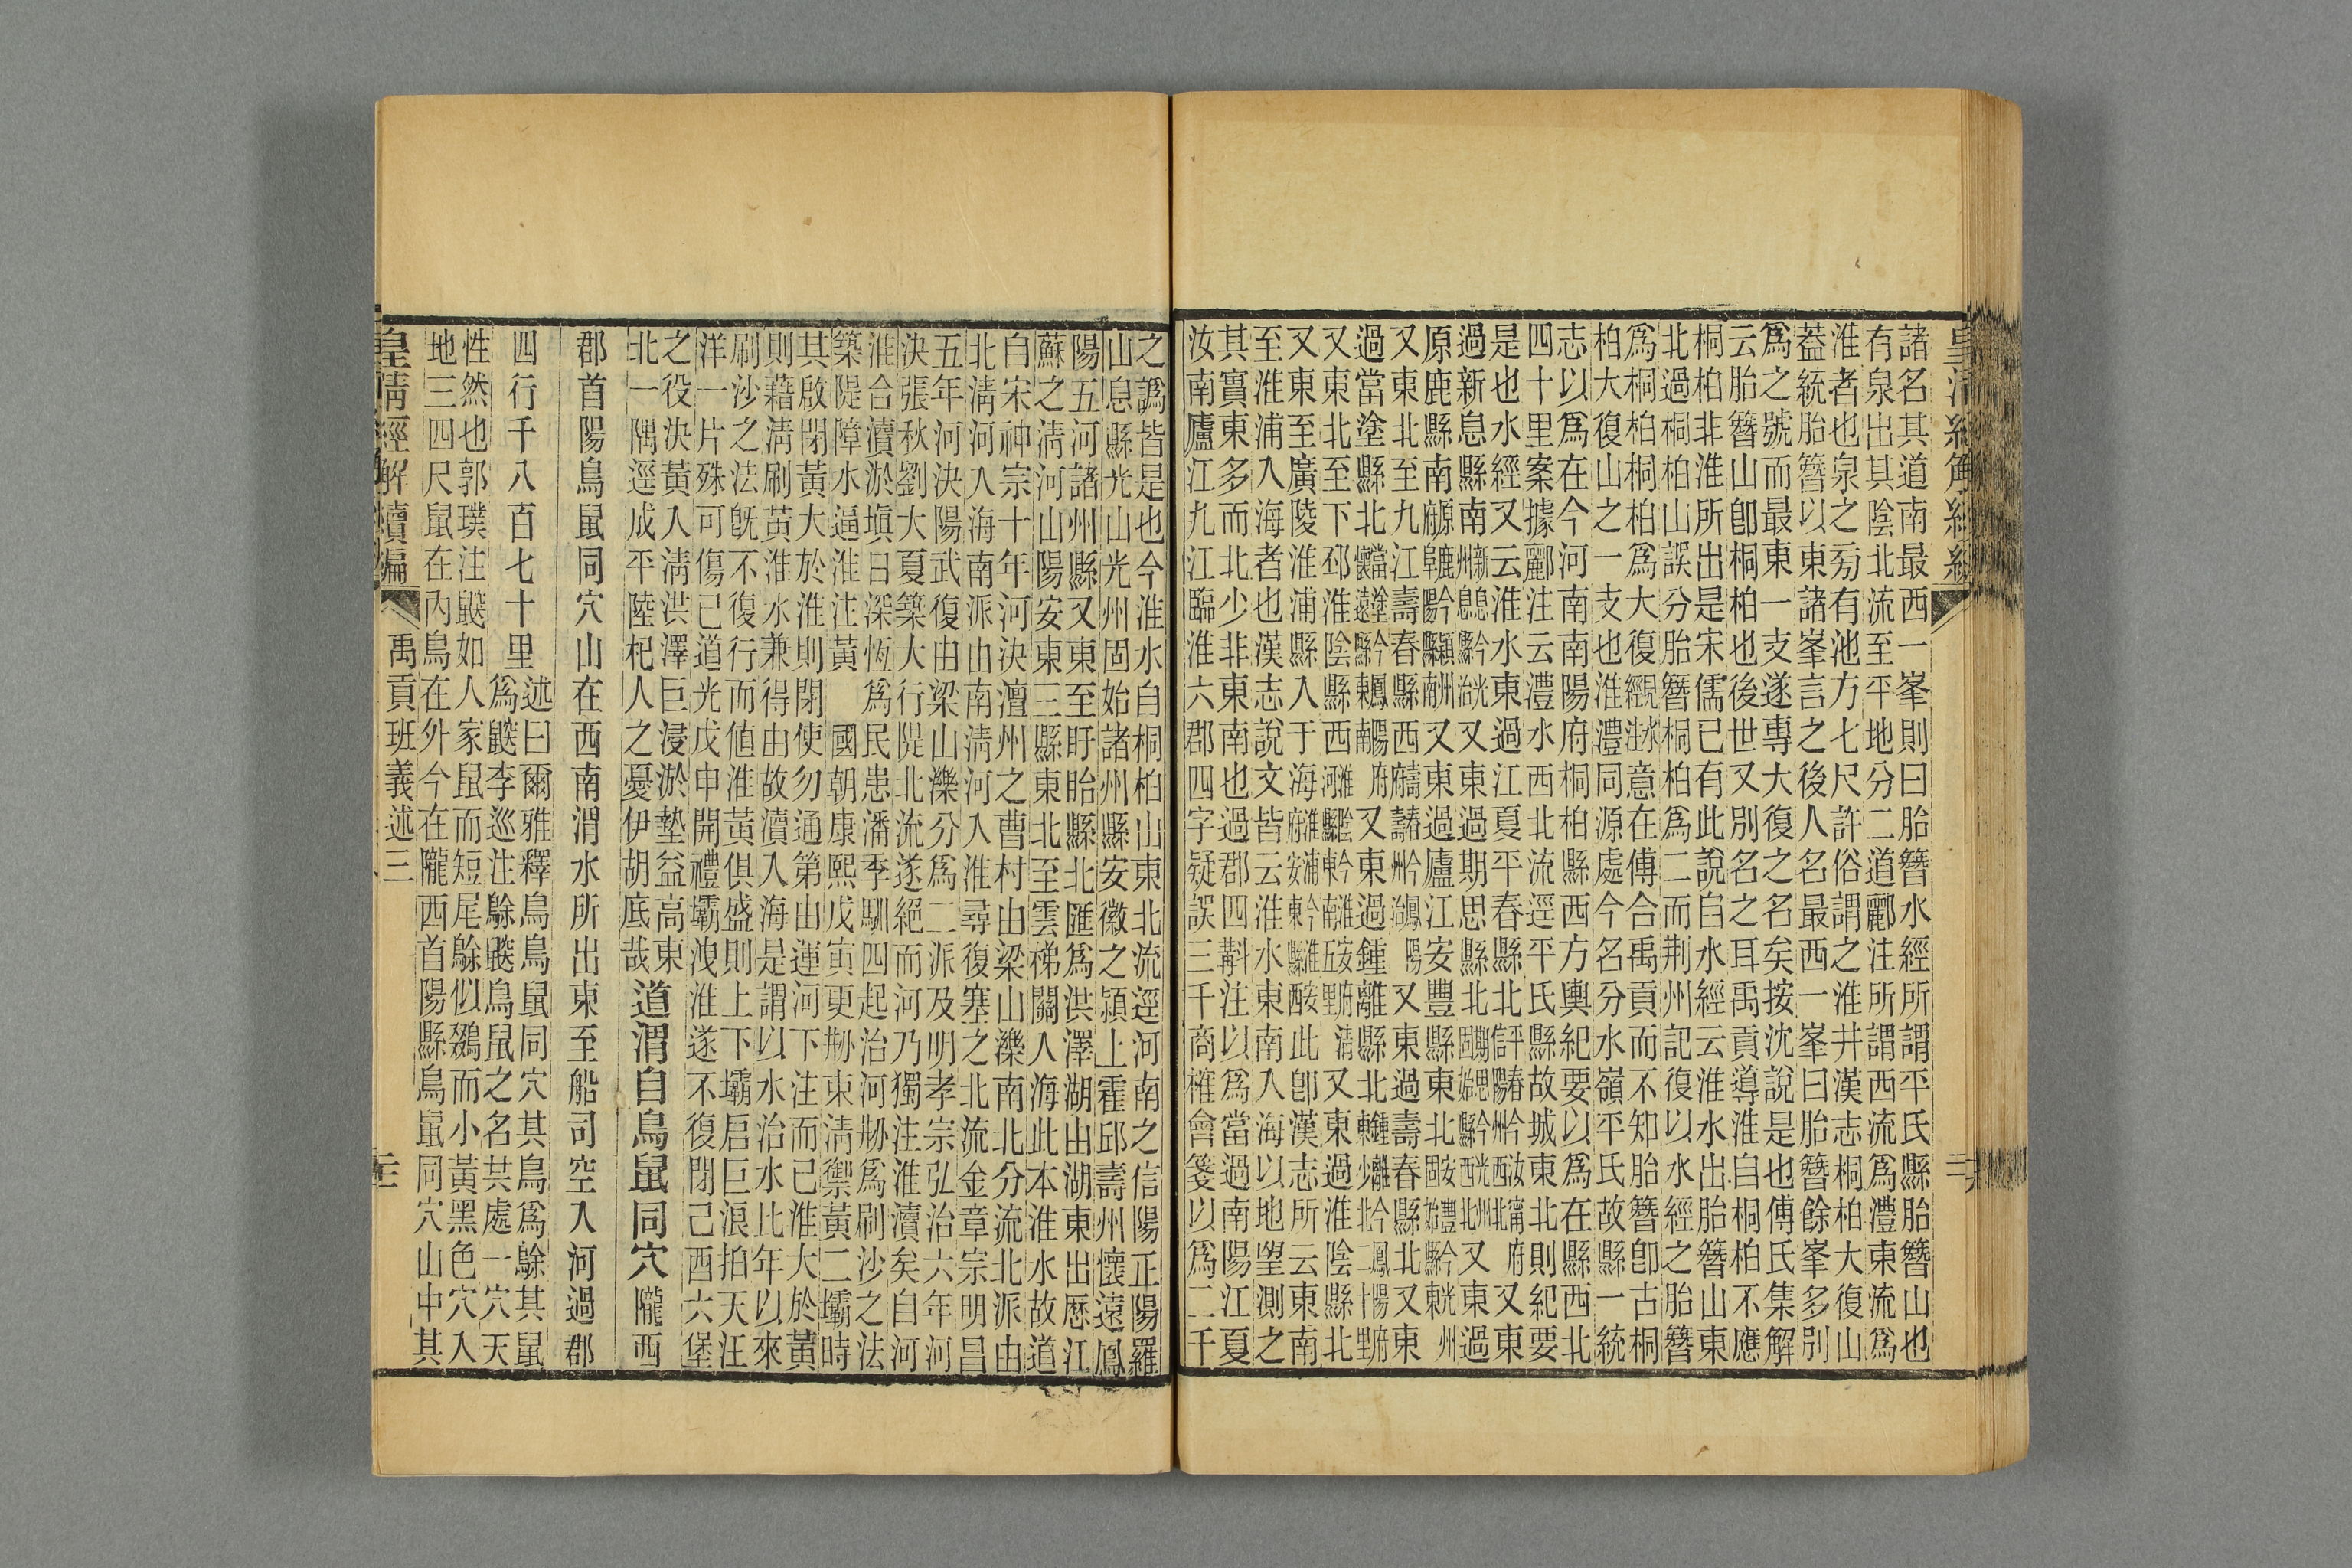 皇清經解續編
諸名其道南最西一峯則曰胎簪水經所謂平氏縣胎簪山也
有泉出其陰北流至平地分二道酈注所謂西流爲澧東流爲
淮者也泉之旁有池方七尺許俗謂之淮井漢志桐柏大復山
葢統胎簪以東諸峯言之後人名最西一峯曰胎簪餘峯多別
爲之號而最東一支遂專大復之名矣按沈說是也傅氏集解
云胎簪山卽桐柏也後世又別名之耳禹貢導淮自桐柏不應
桐柏非淮所出是宋儒已有此說自水經云淮水出胎簪山東
北過桐柏山誤分胎簪桐柏爲二而荆州記復以水經之胎簪
爲桐柏桐柏爲大復見水經注意在傅合禹貢而不知胎簪卽古桐
柏大復山之一支也淮澧同源處今名分水嶺平氏故縣一統
志以爲在今河南南陽府桐柏縣西方輿紀要以爲在縣西北
四十里案據酈注云澧水西北流逕平氏縣故城東北則紀要
是也水經又云淮水東過江夏平春縣北平春今汝甯府信陽州西北又東
過新息縣南新息今光州息縣治又東過期思縣北期思今光州固始縣西北又東過
原鹿縣南原鹿今潁州府阜陽縣南又東過廬江安豐縣東北安豐今光州固始縣東
又東北至九江壽春縣西壽春今鳳陽府壽州治又東過壽春縣北又東
過當塗縣北當塗今鳳陽府懷遠縣東南又東過鍾離縣北鍾離今鳳陽府東少北二十里
又東北至下邳淮陰縣西淮陰今淮安府清河縣東南五里又東過淮陰縣北
又東至廣陵淮浦縣入于海淮浦今淮安府安東縣西此卽漢志所云東南
至淮浦入海者也漢志說文皆云淮水東南入海以地望測之
其實東多而北少非東南也過郡四㪷注以爲當過南陽江夏
汝南廬江九江臨淮六郡四字疑誤三千商榷會箋以爲二千
之譌皆是也今淮水自桐柏山東北流逕河南之信陽正陽羅
山息縣光山光州固始諸州縣安徽之潁上霍邱壽州懷遠鳳
陽五河諸州縣又東至盱眙縣北匯爲洪澤湖由湖東出歷江
蘇之淸河山陽安東三縣東北至雲梯關入海此本淮水故道
自宋神宗十年河決澶州之曹村由梁山濼南北分流北派由
北淸河入海南派由南淸河入淮尋復塞之北流金章宗明昌
五年河決陽武復由梁山濼分爲二派及明孝宗弘治六年河
決張秋劉大夏築大行隄北流遂絕而河乃獨注淮瀆矣自河
淮合瀆淤塡日深恆爲民患潘季馴四起治河刱爲刷沙之法
築隄障水逼淮注黃 國朝康熙戊寅更刱東淸禦黃二壩時
其啟閉黃大於淮則閉使勿通第由運河下注而已淮大於黃
則藉淸刷黃淮水兼得由故瀆入海是謂以水治水比年以來
刷沙之法旣不復行而値淮黃俱盛則上下壩启巨浪拍天汪
洋一片殊可傷已道光戊申開禮壩洩淮遂不復閉己酉六堡
之役決黃人淸洪澤巨浸淤墊益高東
北一隅逕成平陸杞人之憂伊胡底哉
道渭自鳥鼠同穴隴西
郡首陽鳥鼠同穴山在西南渭水所出東至船司空入河過郡
四行千八百七十里
述曰爾雅釋鳥鳥鼠同穴其鳥爲鵌其鼠
爲鼵李巡注鵌鼵鳥鼠之名共處一穴天
性然也郭璞注鼵如人家鼠而短尾鵌似鵽而小黃黑色穴入
地三四尺鼠在內鳥在外今在隴西首陽縣鳥鼠同穴山中其
皇淸經解續編 禹貢班義述三